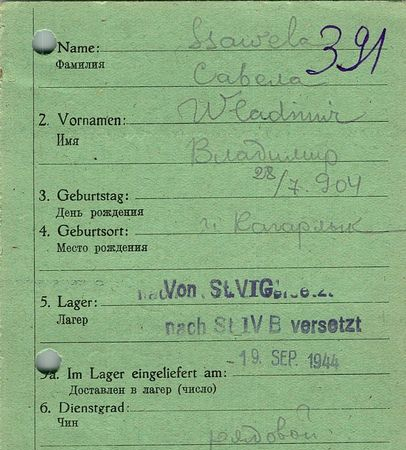 Name: Ssawela 391
Фамилия Савела
2. Vornamen: Wladimir
Имя Владимир
3. Geburtstag: 28/7.904
День рождения
4. Geburtsort: г. Кагарлык
Место рождения
Von St. VI G
5. Lager:
Лагер nach St IV B versetzt
19. SEP. 1944
9a. Im Lager eingeliefert am:
Доставлен в лагер (число)
6. Dienstgrad:
Чин рядовой